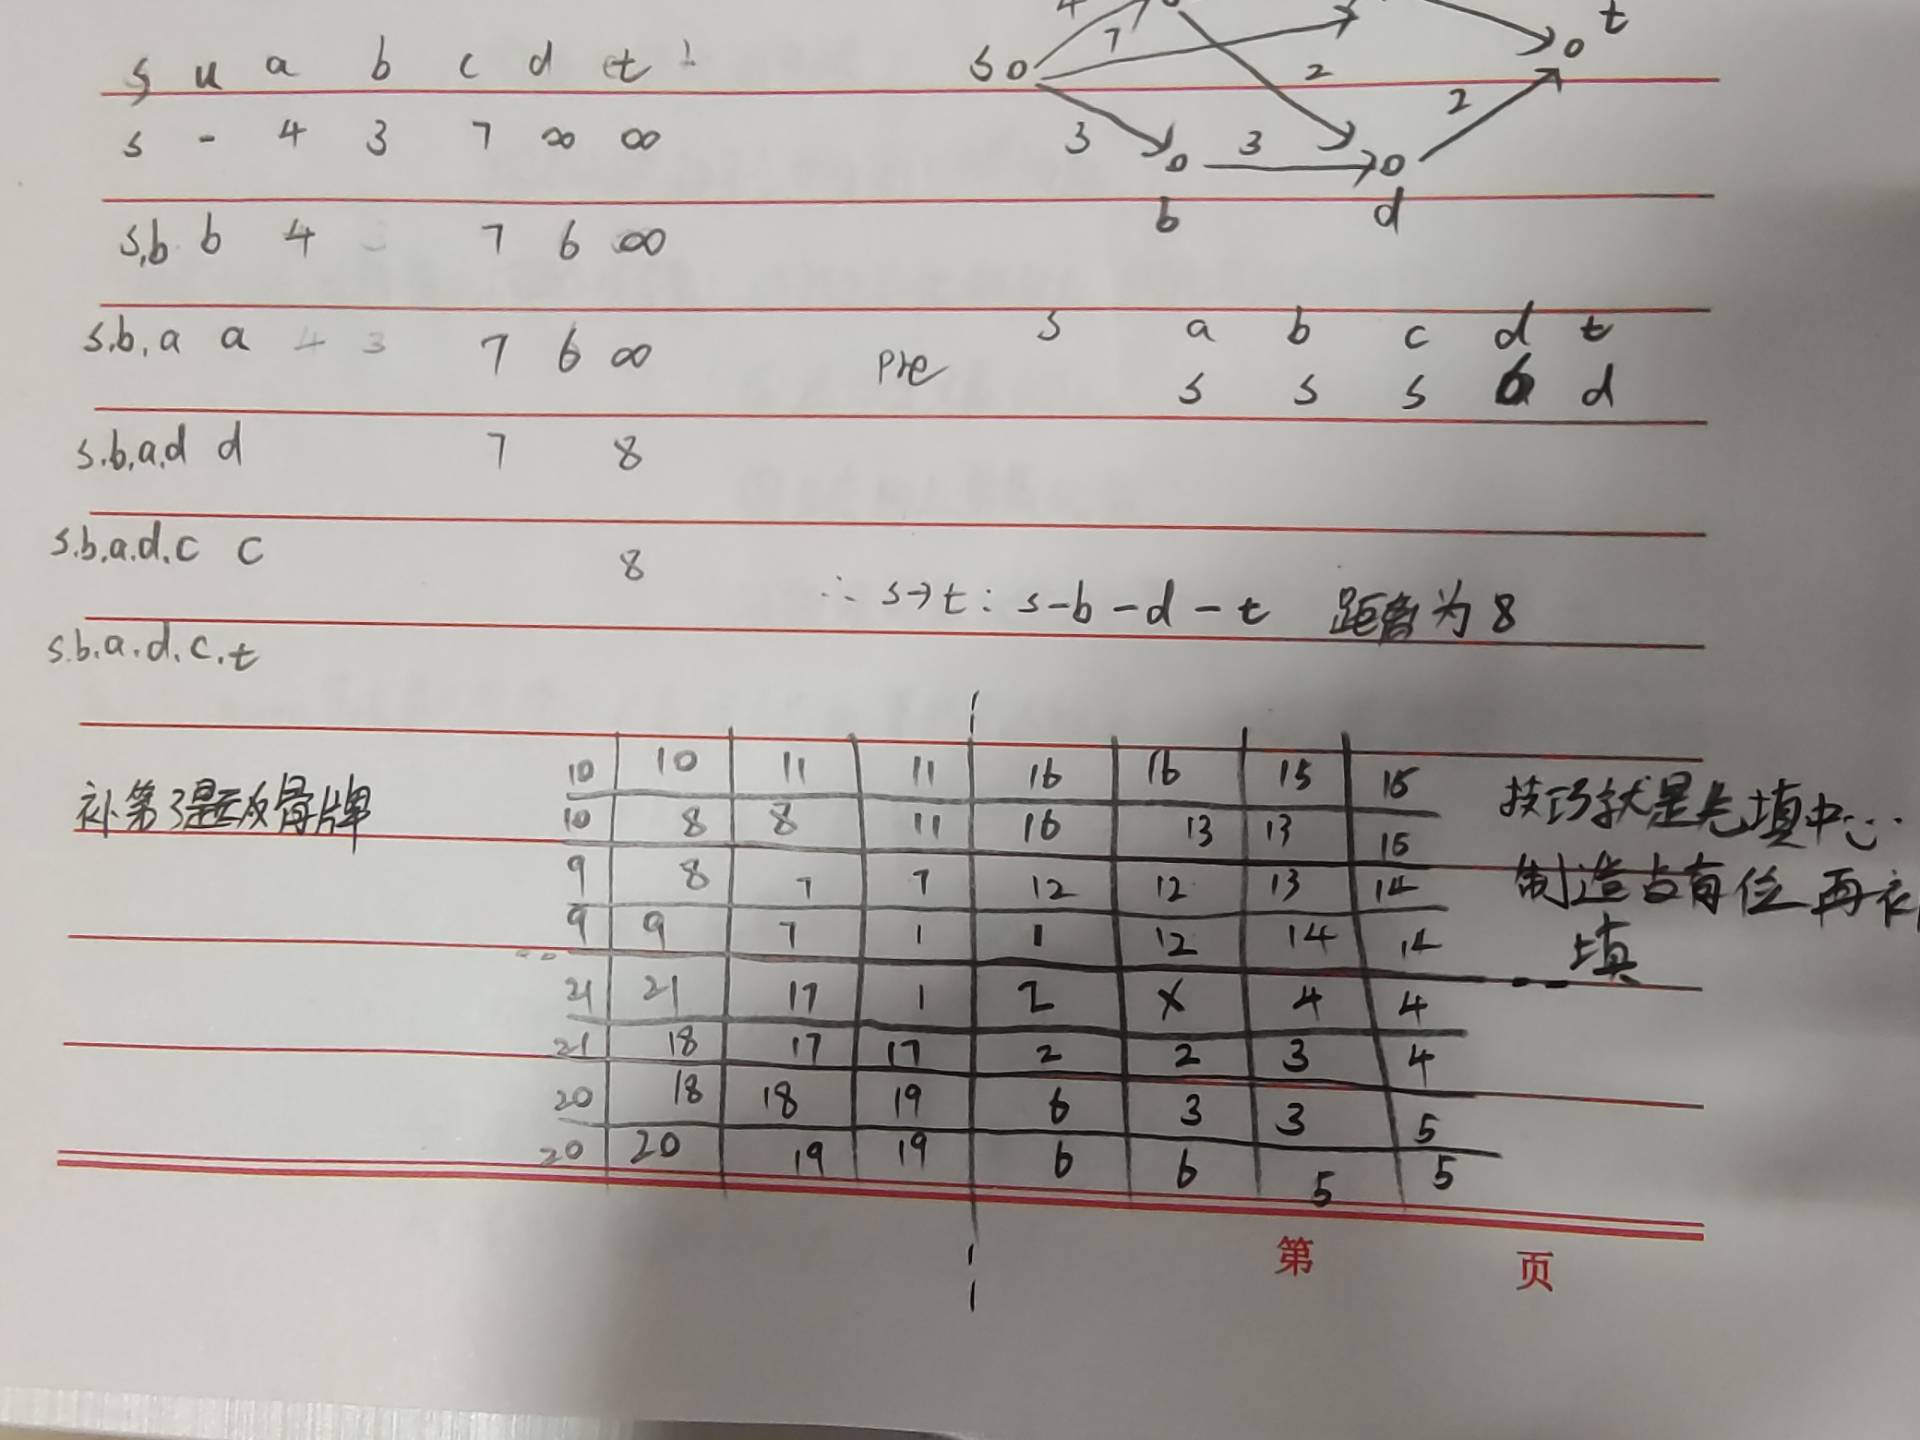 s u a b c d t
s - 4 3 7 ∞ ∞
s,b b 4 3 7 6 ∞
s.b.a a 4 3 7 6 ∞
s.b.a.d d 7 8
s.b.a.d.c c 8
s.b.a.d.c.t
4
7
2
3
3
2
s
t
b
d
s a b c d t
pre s s s b d
∴ s→t: s-b-d-t 距离为8
补第3题残骨牌
10 10 11 11 16 16 15 15
10 8 8 11 16 13 13 15
9 8 7 7 12 12 13 14
9 9 7 1 1 12 14 14
21 21 17 1 2 X 4 4
21 18 17 17 2 2 3 4
20 18 18 19 6 3 3 5
20 20 19 19 6 6 5 5
技巧就是先填中心
制造占有位再补
填
第 页